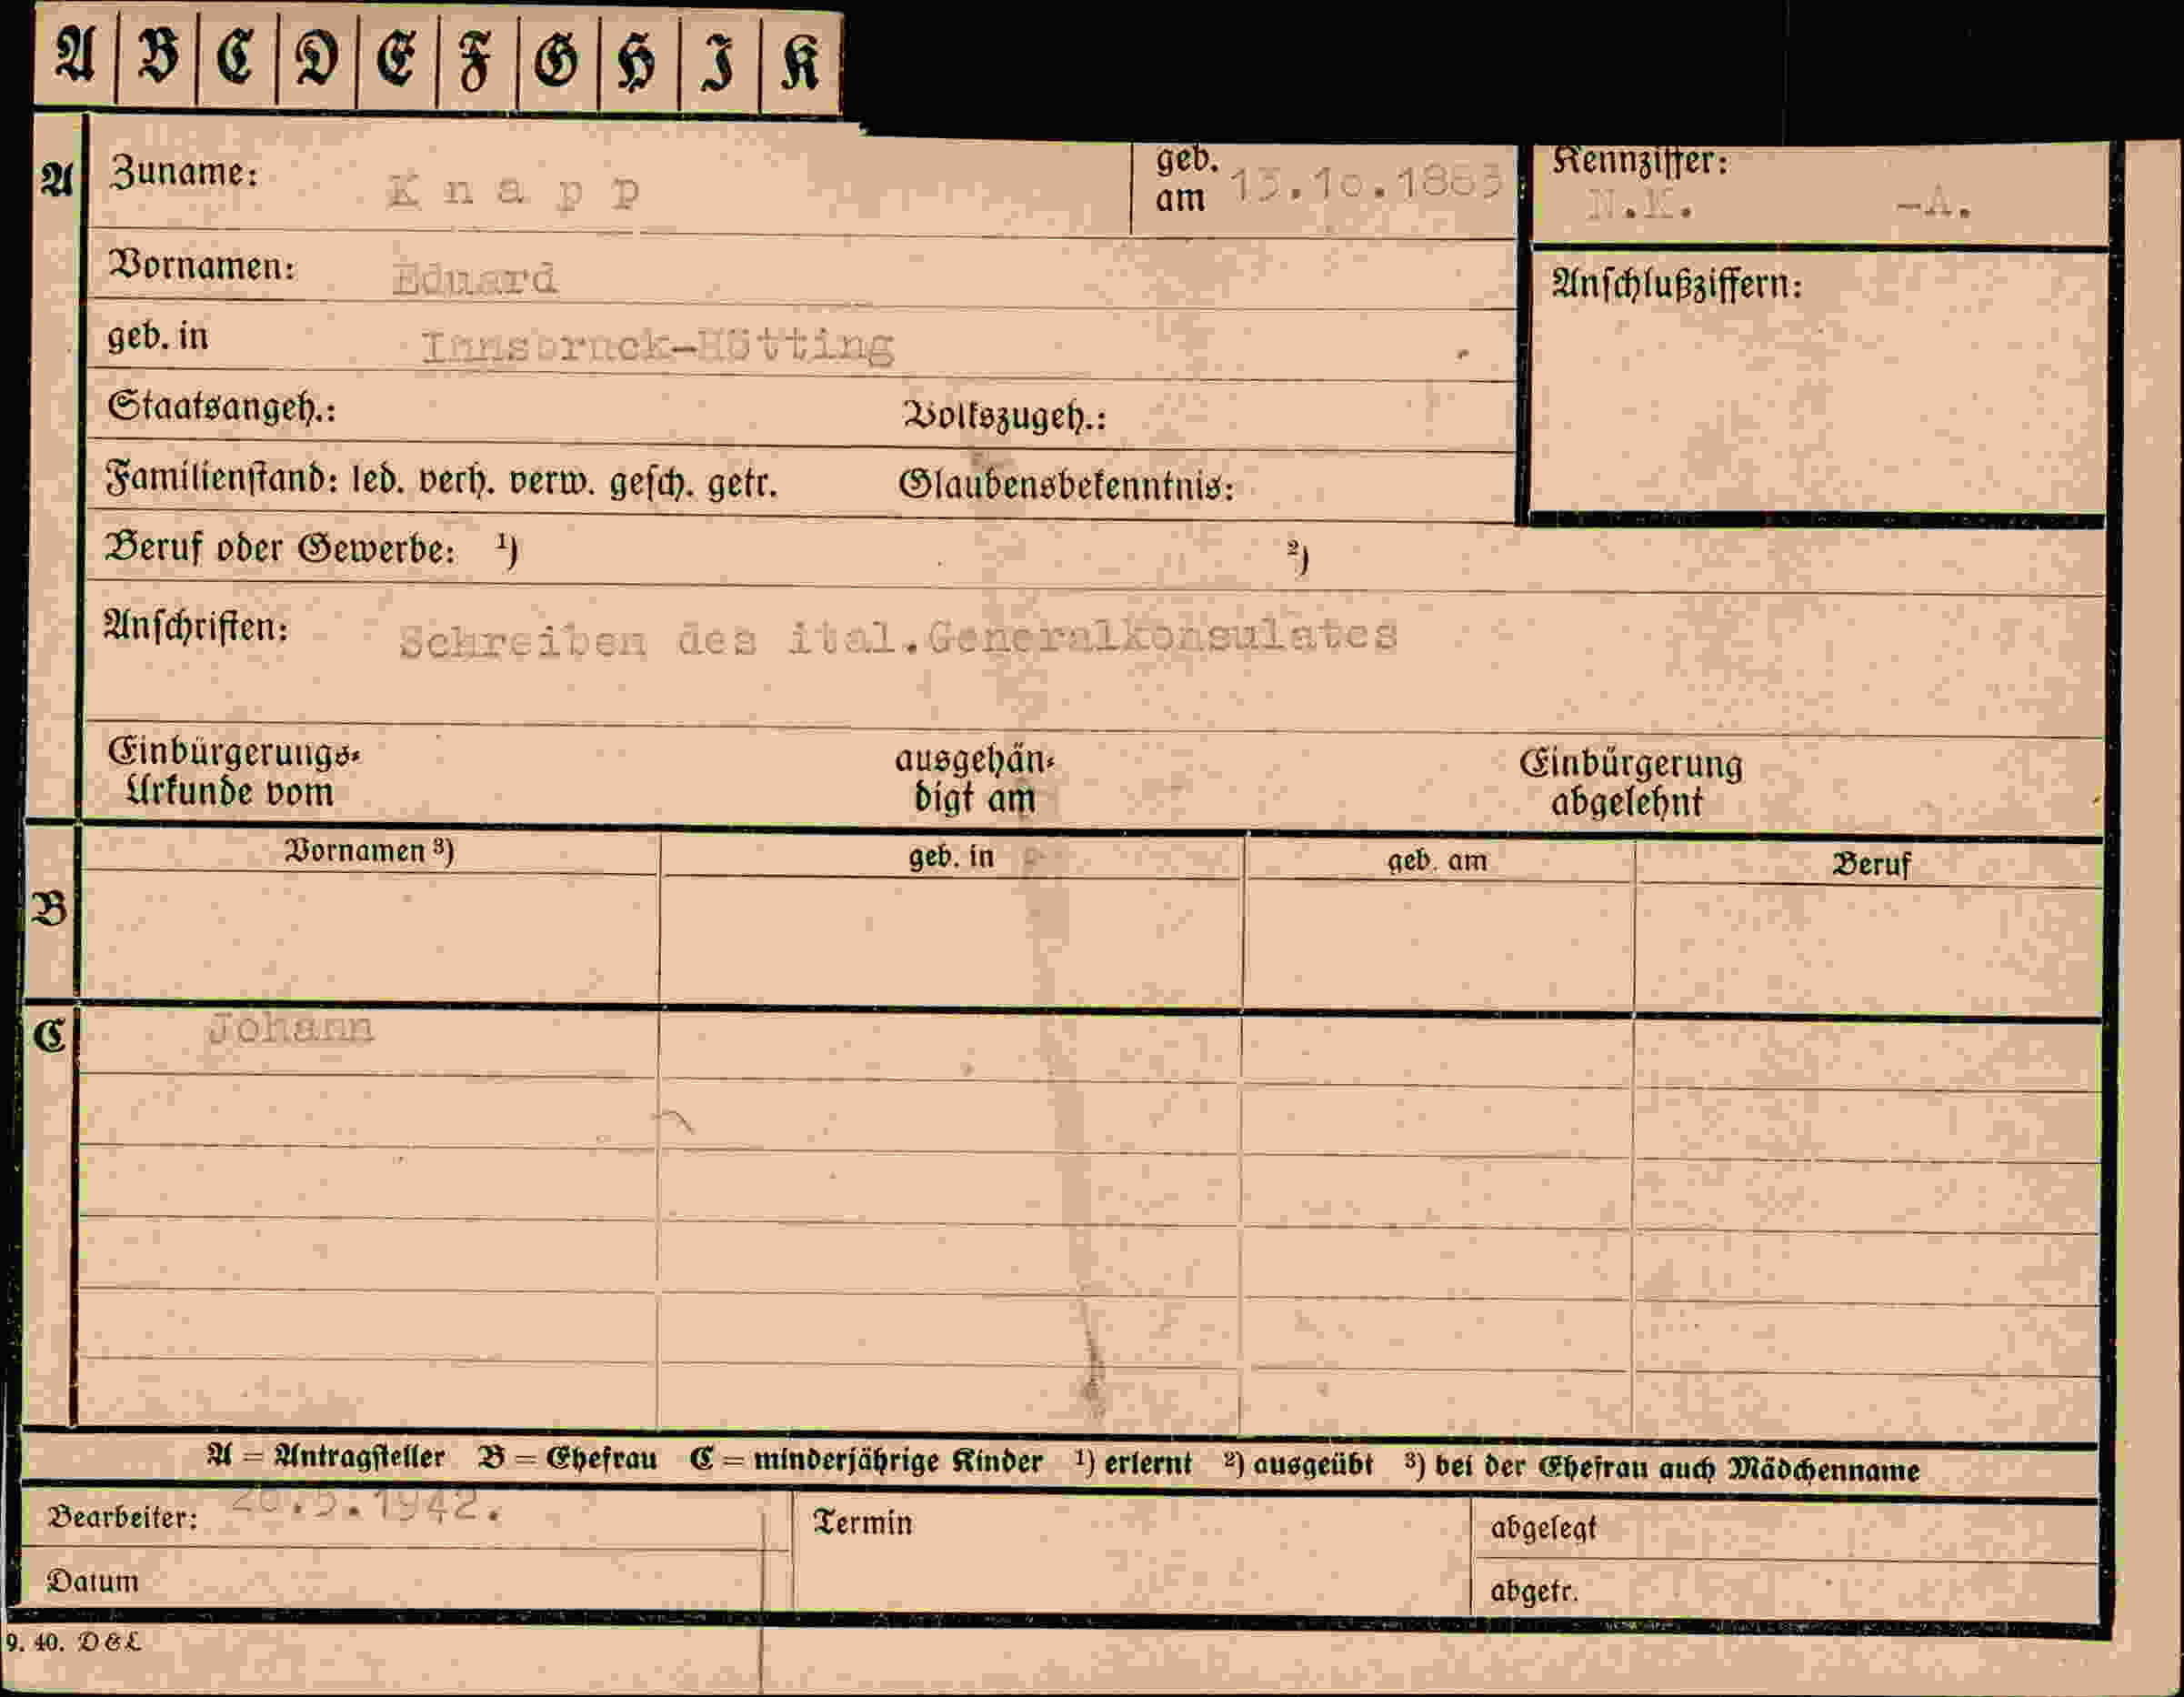 A B C D E F G H I K
A Zuname: Knapp geb. am 13.10.1883 Kennziffer: N.K. -A.
Vornamen: Eduard
Anschlußziffern:
geb. in Innsbruck-Hötting
Staatsangeh.: Volkszugeh.:
Familienstand: led. verh. verw. gesch. getr. Glaubensbekenntnis:
Beruf oder Gewerbe: ¹) ²)
Anschriften: Schreiben des ital.Generalkonsulates
Einbürgerungs- ausgehän- Einbürgerung
Urkunde vom digt am abgelehnt
Vornamen ³) geb. in geb. am Beruf
B
C Johann
A = Antragsteller B = Ehefrau C = minderjährige Kinder ¹) erlernt ²) ausgeübt ³) bei der Ehefrau auch Mädchenname
Bearbeiter: .5.1942. Termin abgelegt
Datum abgefr.
9. 40. D&L